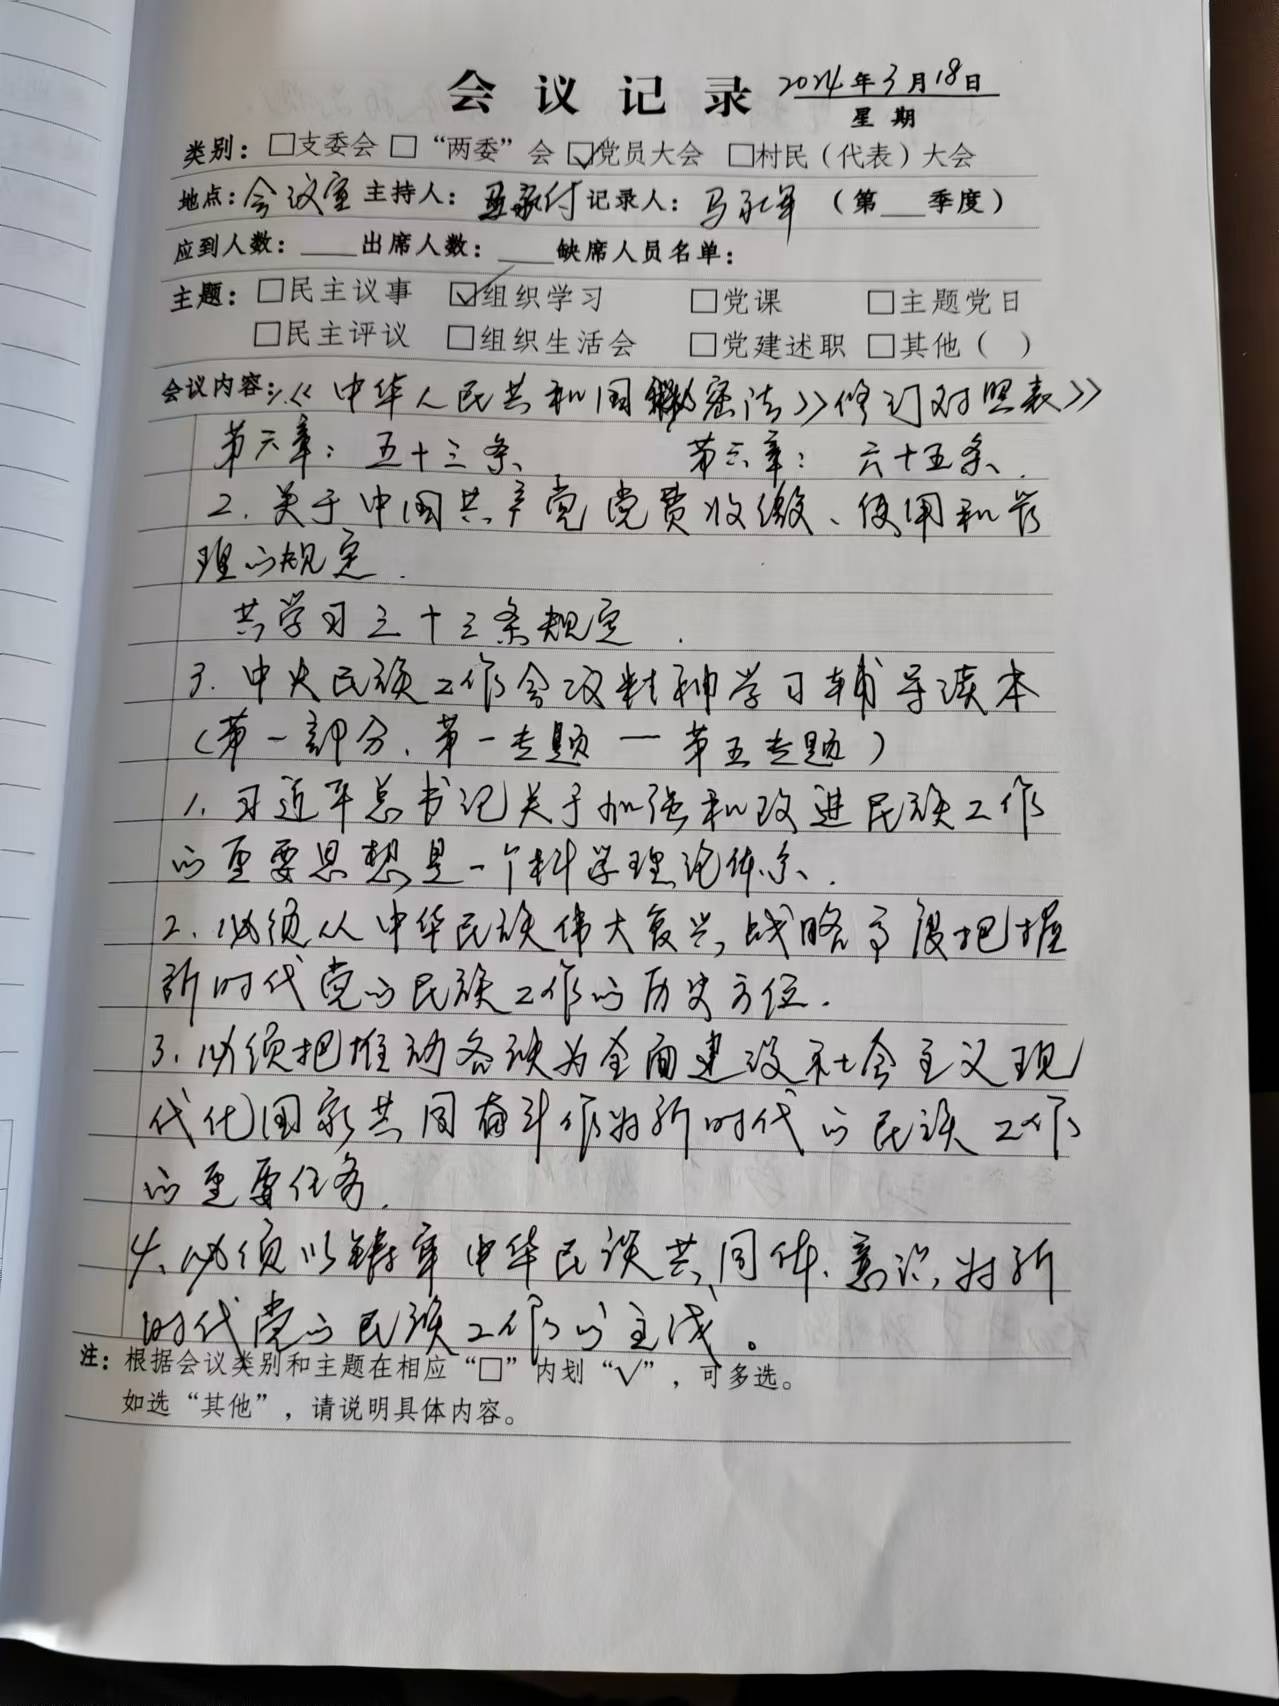 会议记录 2024年3月18日
星期
类别：□支委会 □“两委”会 ☑党员大会 □村民（代表）大会
地点：会议室 主持人： 记录人：马永军 （第___季度）
应到人数：____出席人数：____缺席人员名单：
主题：□民主议事 ☑组织学习 □党课 □主题党日
□民主评议 □组织生活会 □党建述职 □其他（ ）
会议内容：1.《《中华人民共和国密法》修订对照表》
第六章：五十三条、 第六章：六十五条、.
2.关于中国共产党党费收缴、使用和管
理的规定.
共学习三十三条规定.
3.中央民族工作会议精神学习辅导读本
（第一部分、第一专题—第五专题）
1.习近平总书记关于加强和改进民族工作
的重要思想是一个科学理论体系.
2.必须从中华民族伟大复兴战略高度把握
新时代党的民族工作的历史方位.
3.必须把推动各族为全面建设社会主义现
代化国家共同奋斗作为新时代的民族工作
的重要任务.
4、必须以铸牢中华民族共同体、意识为新
时代党的民族工作的主线。
注：根据会议类别和主题在相应“□”内划“√”，可多选。
如选“其他”，请说明具体内容。